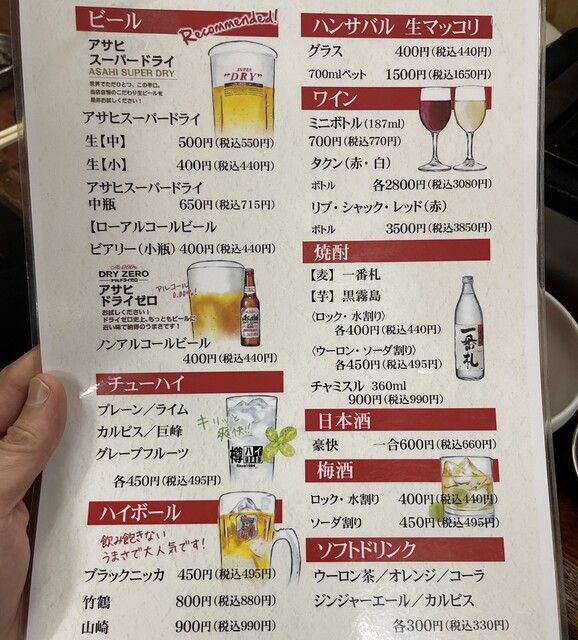 ビール
Recommended!
アサヒ
スーパードライ
ASAHI SUPER DRY
世界でただひとつ、この辛口。
当店自慢のこだわり生ビールを
是非お試しください！
SUPER
"DRY"
アサヒスーパードライ
生【中】 500円(税込550円)
生【小】 400円(税込440円)
アサヒスーパードライ
中瓶 650円(税込715円)
【ローアルコールビール
ビアリー(小瓶) 400円(税込440円)
DRY ZERO
アサヒ
ドライゼロ
お試しください！
ドライゼロ史上、もっともビールに
近い味で納得のうまさです！
アルコール
0.00%!
ノンアルコールビール
400円(税込440円)
チューハイ
プレーン／ライム
カルピス／巨峰
グレープフルーツ
各450円(税込495円)
キリッと
爽快!!
樽ハイ
倶楽部
Since1984
ハイボール
飲み飽きない
うまさで大人気です!
ブラックニッカ 450円(税込495円)
竹鶴 800円(税込880円)
山崎 900円(税込990円)
ハンサバル 生マッコリ
グラス 400円(税込440円)
700mlペット 1500円(税込1650円)
ワイン
ミニボトル(187ml)
700円(税込770円)
タクン(赤・白)
ボトル 各2800円(税込3080円)
リブ・シャック・レッド(赤)
ボトル 3500円(税込3850円)
焼酎
【麦】一番札
【芋】黒霧島
〈ロック・水割り〉
各400円(税込440円)
〈ウーロン・ソーダ割り〉
各450円(税込495円)
一番札
チャミスル 360ml
900円(税込990円)
日本酒
豪快 一合600円(税込660円)
梅酒
ロック・水割り 400円(税込440円)
ソーダ割り 450円(税込495円)
ソフトドリンク
ウーロン茶／オレンジ／コーラ
ジンジャーエール／カルピス
各300円(税込330円)